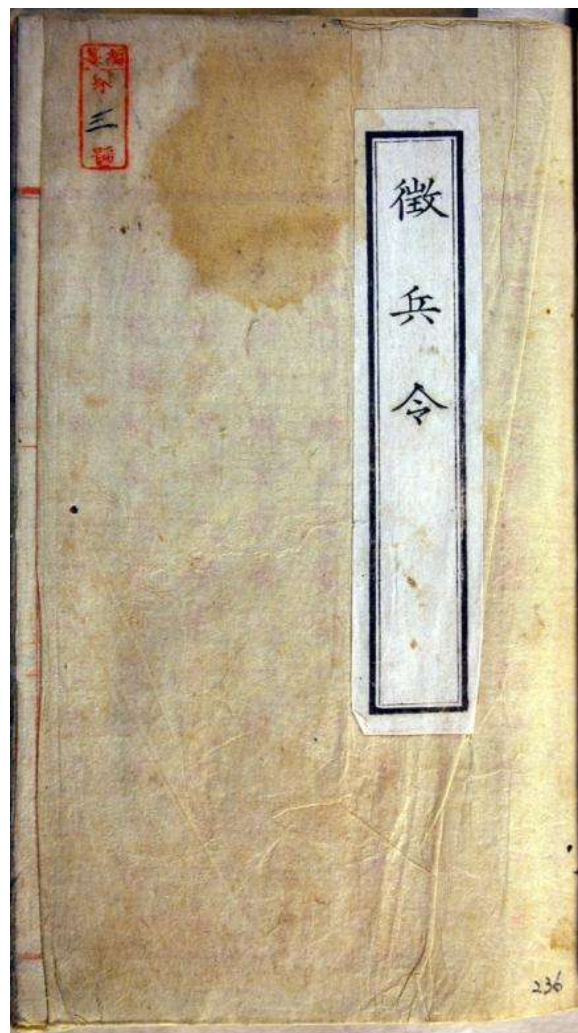 徴兵令
三
號
236